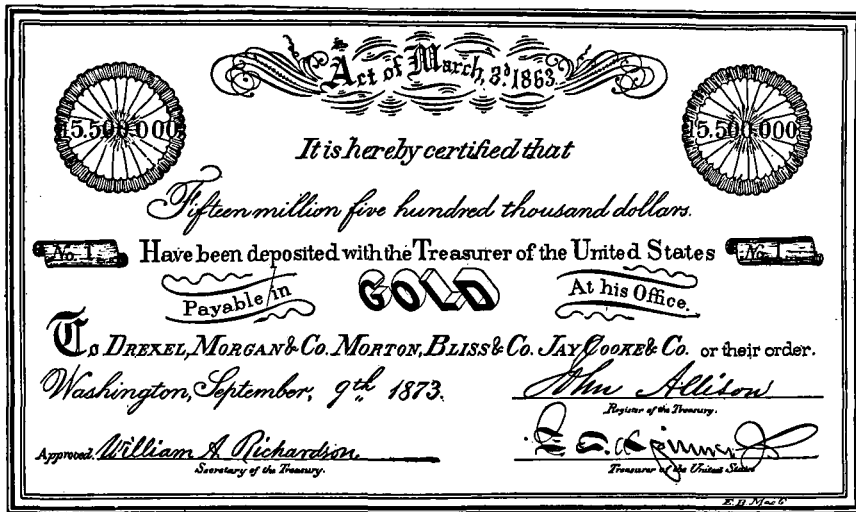 Act of March, 3d 1863.
15.500.000 15.500.000
It is hereby certified that
Fifteen million five hundred thousand dollars.
No. 1 Have been deposited with the Treasurer of the United States No. 1
Payable in GOLD At his Office.
To DREXEL, MORGAN & Co. MORTON, BLISS & Co. JAY COOKE & Co. or their order.
Washington, September, 9th 1873. John Allison
Register of the Treasury.
Approved. William A Richardson
Secretary of the Treasury. Treasurer of the United States